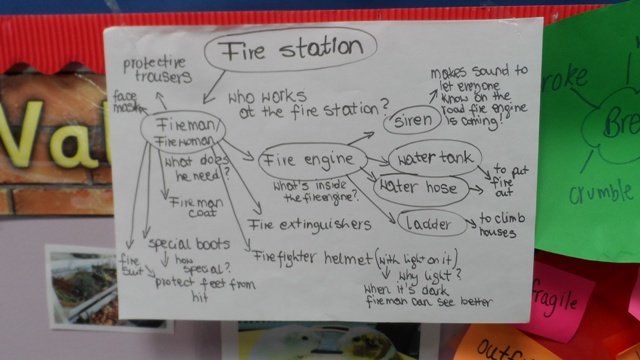 Fire station
protective
trousers
face
mask
who works
at the fire station?
makes sound to
let everyone
know on the
road fire engine
is coming!
siren
Fireman/
Firewoman
what does
he need?
Fire engine
what's inside
the fire engine?
water tank
water hose
to put
fire
out
ladder
to climb
houses
Fireman
coat
Fire extinguishers
special boots
how
special?
protect feet from
hit
fire
suit
Firefighter helmet (with light on it)
why light?
when it's dark
fireman can see better
Va
Bre
crumble
fragile